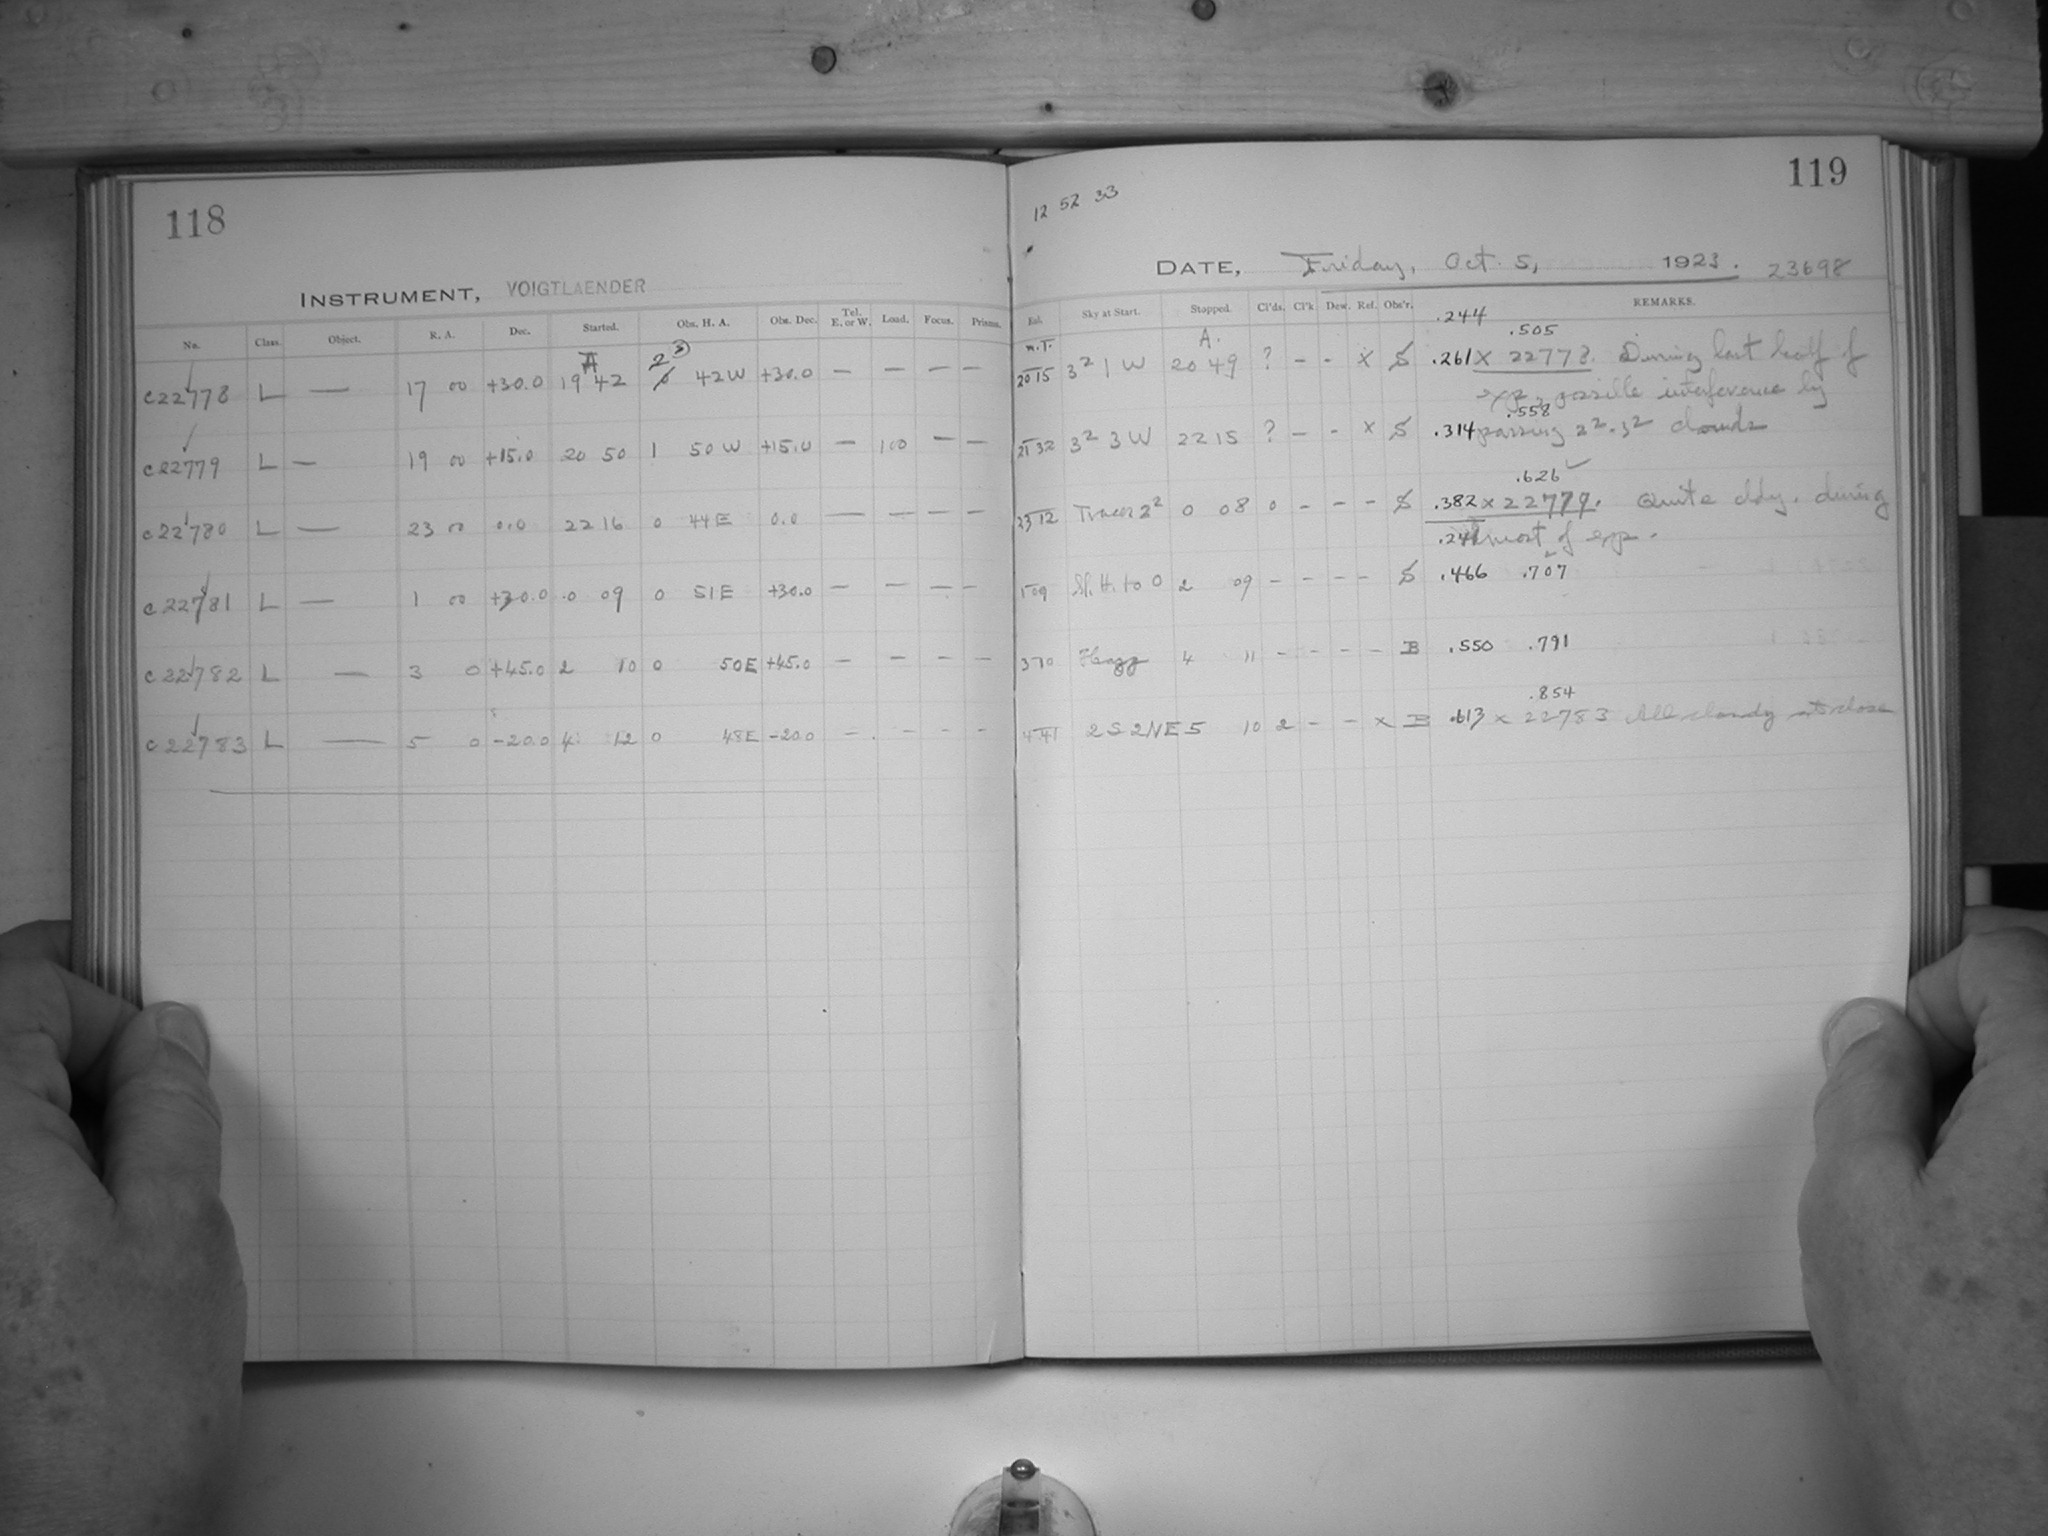 118
INSTRUMENT, VOIGTLAENDER
No. Class. Object. R. A. Dec. Started. Obs. H. A. Obs. Dec. Tel. E. or W. Load. Focus. Prisms.
A 2
c22778 L — 17 00 +30.0 19 42 0 42W +30.0 — — — —
c22779 L — 19 00 +15.0 20 50 1 50W +15.0 — 100 — —
c22780 L — 23 00 0.0 22 16 0 44E 0.0 — — — —
c22781 L — 1 00 +30.0 0 09 0 51E +30.0 — — — —
c22782 L — 3 0 +45.0 2 10 0 50E +45.0 — — — —
c22783 L — 5 0 -20.0 4 12 0 48E -20.0 — - - -
119
12 52 33
DATE, Friday, Oct. 5, 1923. 23698
Sky at Start. Stopped. Cl'ds. Cl'k Dew. Ref. Obs'r. REMARKS.
.244
m.T. A. .505
20 15 3² 1 W 20 49 ? - - x S .261 x 22778. During last half of
exp., possible interference by
.558
21 32 3² 3 W 22 15 ? - - x S .314 passing 2².3² clouds
.626
23 12 Traces 2² 0 08 0 - - - S .382 x 22779. Quite cldy. during
most of exp.
1 09 Sl. H. to 0 2 09 - - - - S .466 .707
3 10 Hazy 4 11 - - - - B .550 .791
.854
4 41 2S 2NE 5 10 2 - - x B .613 x 22783 All cloudy at close